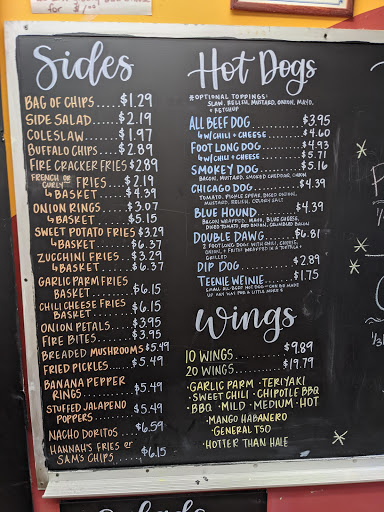 for $1.00
Sides
BAG OF CHIPS....$1.29
SIDE SALAD.....$2.19
COLESLAW......$1.97
BUFFALO CHIPS...$2.89
FIRE CRACKER FRIES $2.89
FRENCH OR CURLY FRIES....$2.19
↳BASKET.......$4.39
ONION RINGS....$3.07
↳BASKET......$5.15
SWEET POTATO FRIES $3.29
↳BASKET......$6.37
ZUCCHINI FRIES..$3.29
↳BASKET......$6.37
GARLIC PARM FRIES
BASKET......$6.15
CHILI CHEESE FRIES
BASKET......$6.15
ONION PETALS....$3.95
FIRE BITES.....$3.95
BREADED MUSHROOMS $5.49
FRIED PICKLES.....$5.49
BANANA PEPPER
RINGS.......$5.49
STUFFED JALAPENO
POPPERS.....$5.49
NACHO DORITOS...$6.59
HANNAH'S FRIES OR
SAM'S CHIPS....$6.15
Hot Dogs
*OPTIONAL TOPPINGS:
SLAW, RELISH, MUSTARD, ONION, MAYO,
+ KETCHUP
ALL BEEF DOG........$3.95
↳W/CHILI + CHEESE.....$4.60
FOOT LONG DOG......$4.93
↳W/CHILI + CHEESE.....$5.71
SMOKEY DOG........$5.16
BACON, MUSTARD, SMOKED CHEDDAR, ONION
CHICAGO DOG.......$4.39
TOMATO, PICKLE SPEAR, DICED ONION,
MUSTARD, RELISH, CELERY SALT
BLUE HOUND.......$4.39
BACON WRAPPED, MAYO, BLUE CHEESE,
DICED TOMATO, RED ONION, CRUMBLED BACON
DOUBLE DAWG.......$6.81
2 FOOT LONG DOGS WITH CHILI, CHEESE,
ONION, + FRIES WRAPPED IN A TORTILLA
GRILLED
DIP DOG........$2.89
TEENIE WEINIE....$1.75
SMALL ALL BEEF HOT DOG-CAN BE MADE
UP ANY WAY FOR A LITTLE MORE $
Wings
10 WINGS.........$9.89
20 WINGS........$19.79
·GARLIC PARM ·TERIYAKI
·SWEET CHILI ·CHIPOTLE BBQ
·BBQ ·MILD ·MEDIUM ·HOT
·MANGO HABANERO
·GENERAL TSO
·HOTTER THAN HALE